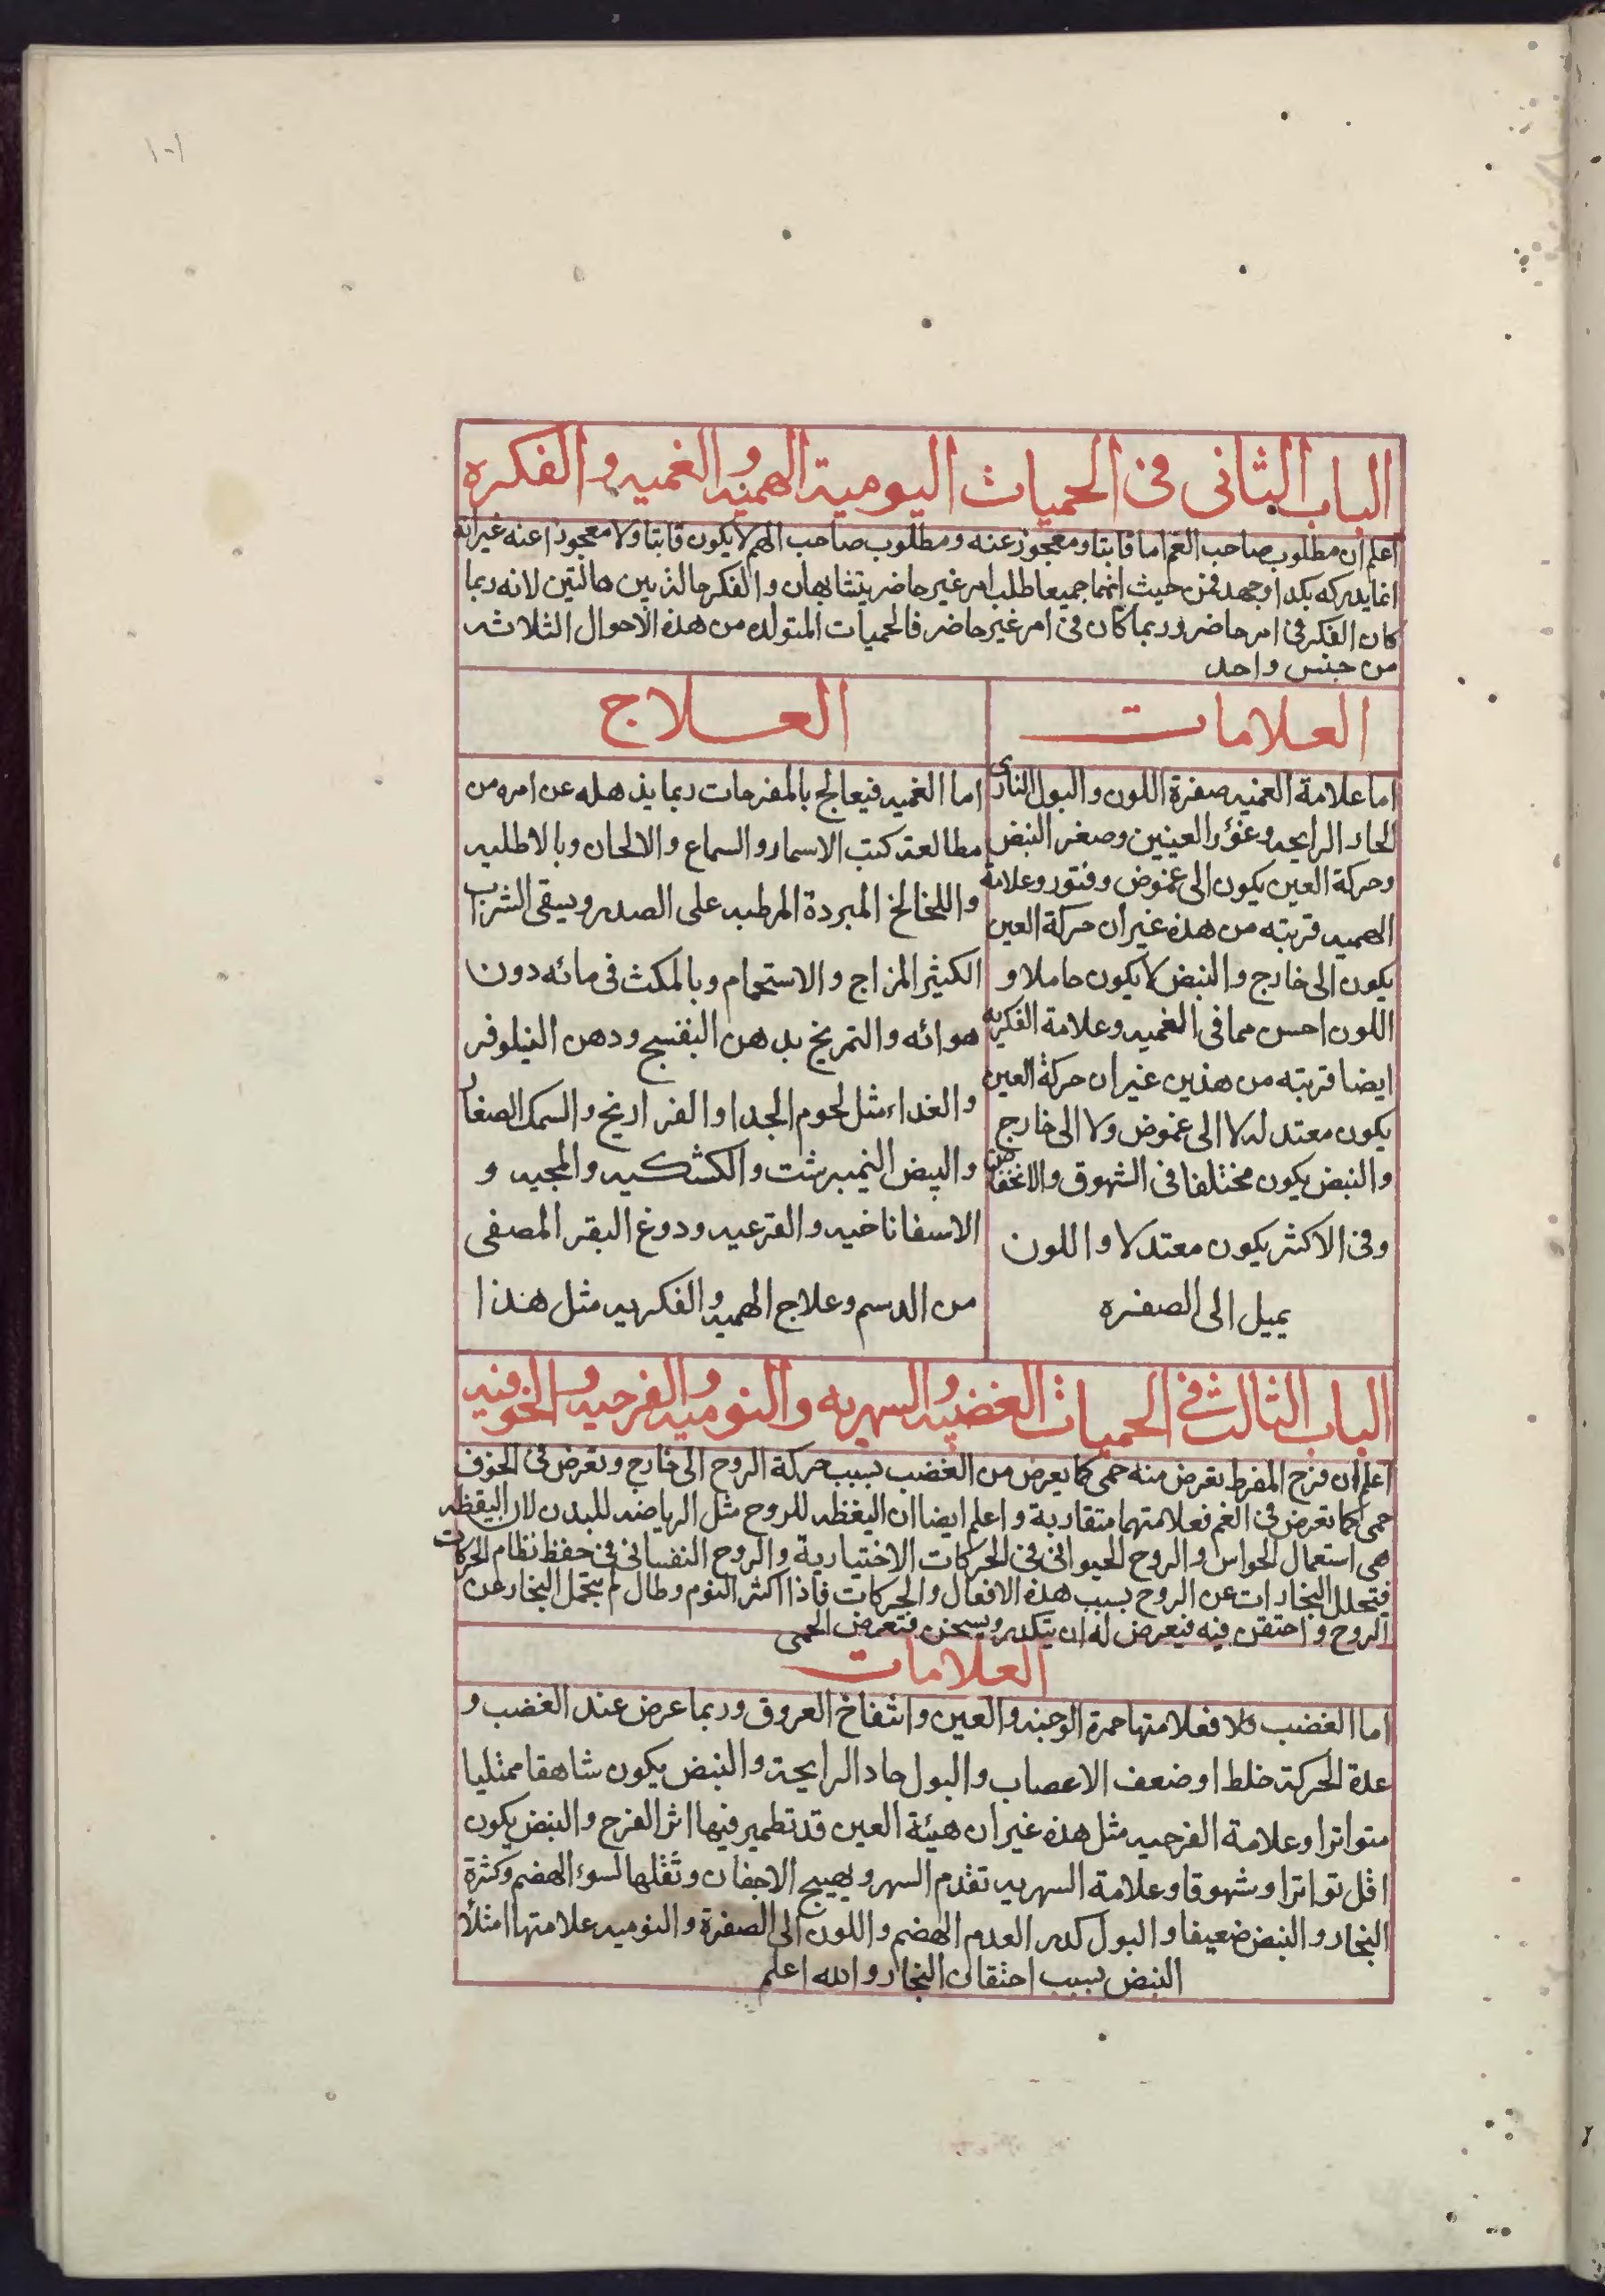 ١٠١
الباب الثانى فى الحميات اليومية الهميه و الغميه و الفكره
اعلم ان مطلوب صاحب الغم اما فايتا ومعجوز عنه ومطلوب صاحب الهم لا يكون فايتا ولا معجوزا عنه غير انه
انما يدركه بكد او جهد فمن حيث انهما جميعا طلب امر غير حاضر يتشابهان و الفكر حالة بين هاتين لانه ربما
كان الفكر فى امر حاضر وربما كان فى امر غير حاضر فالحميات المتولده من هذه الاحوال الثلاثه
من جنس واحد
العلامات
اما علامة الغميه صفرة اللون و البول النارى
الحاد الرايحه وغؤر العينين وصغر النبض
وحركة العين يكون الى غموض وفتور وعلامة
الهميه قريبه من هذه غير ان حركة العين
يكون الى خارج و النبض لا يكون خاملا و
اللون احسن مما فى الغميه وعلامة الفكريه
ايضا قريبه من هذين غير ان حركة العين
يكون معتدله لا الى غموض ولا الى خارج
و النبض يكون مختلفا فى الشهوق و الانخفاض
وفى الاكثر يكون معتدلا و اللون
يميل الى الصفره
العلاج
اما الغميه فيعالج بالمفرحات ربما يذهله عن امره من
مطالعة كتب الاسمار و السماع و الالحان وبالاطليه
و اللخالخ المبردة المرطبه على الصدر ويسقى الشراب
الكثير المزاج و الاستحمام وبالمكث فى مائه دون
هوائه و التمريخ بدهن البنفسج ودهن النيلوفر
و الغداء مثل لحوم الجدا و الفراريخ و السمك الصغار
و البيض النيمبرشت و الكشكيه و المجيه و
الاسفاناخيه و القرعيه ودوغ البقر المصفى
من الدسم وعلاج الهميه و الفكريه مثل هذا
الباب الثالث فى الحميات الغضبيه و السهريه و النوميه و الفرحيه و الخوفيه
اعلم ان فرح المفرط تعرض منه حمى كما يعرض من الغضب بسبب حركة الروح الى خارج وتعرض فى الخوف
حمى كما تعرض فى الغم فعلامتهما متقاربة و اعلم ايضا ان اليغظه للروح مثل الرياضه للبدن لان اليقظه
هى استعمال الحواس و الروح الحيوانى فى الحركات الاختيارية و الروح النفسانى فى حفظ نظام الحركات
فيتحلل البخارات عن الروح بسبب هذه الافعال و الحركات فاذا اكثر النوم وطال لم يتحلل البخار عن
الروح و احتقن فيه فيعرض له ان يتكدر ويسخن فتعرض الحمى
العلامات
اما الغضب فعلامتها حمرة الوجنه و العين و انتفاخ العروق وربما عرض عند الغضب و
عدة الحركة خلط او ضعف الاعصاب و البول حاد الرايحة و النبض يكون شاهقا ممتليا
متواترا وعلامة الفرحيه مثل هذه غير ان هيئة العين قد تظهر فيها اثر الفرح و النبض يكون
اقل تواترا وشهوقا وعلامة السهريه تقدم السهر وتهيج الاجفان وثقلها لسوء الهضم وكثرة
البخار و النبض ضعيفا و البول كدر العدم الهضم و اللون الى الصفرة و النوميه علامتها امتلاء
النبض بسبب احتقان البخار و الله اعلم